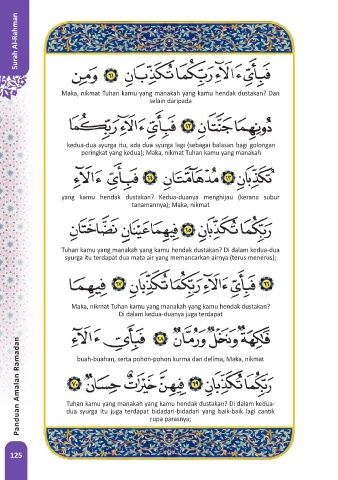 Surah Al-Rahman
فَبِأَيِّ ءَالَآءِ رَبِّكُمَا تُكَذِّبَانِ ٦١ وَمِن
Maka, nikmat Tuhan kamu yang manakah yang kamu hendak dustakan? Dan
selain daripada
دُونِهِمَا جَنَّتَانِ ٦٢ فَبِأَيِّ ءَالَآءِ رَبِّكُمَا
kedua-dua syurga itu, ada dua syurga lagi (sebagai balasan bagi golongan
peringkat yang kedua); Maka, nikmat Tuhan kamu yang manakah
تُكَذِّبَانِ ٦٣ مُدْهَآمَّتَانِ ٦٤ فَبِأَيِّ ءَالَآءِ
yang kamu hendak dustakan? Kedua-duanya menghijau (kerana subur
tanamannya); Maka, nikmat
رَبِّكُمَا تُكَذِّبَانِ ٦٥ فِيهِمَا عَيْنَانِ نَضَّاخَتَانِ
Tuhan kamu yang manakah yang kamu hendak dustakan? Di dalam kedua-dua
syurga itu terdapat dua mata air yang memancarkan airnya (terus menerus);
٦٦ فَبِأَيِّ ءَالَآءِ رَبِّكُمَا تُكَذِّبَانِ ٦٧ فِيهِمَا
Maka, nikmat Tuhan kamu yang manakah yang kamu hendak dustakan?
Di dalam kedua-duanya juga terdapat
فَٰكِهَةٌ وَنَخْلٌ وَرُمَّانٌ ٦٨ فَبِأَيِّ ءَالَآءِ
buah-buahan, serta pohon-pohon kurma dan delima, Maka, nikmat
رَبِّكُمَا تُكَذِّبَانِ ٦٩ فِيهِنَّ خَيْرَٰتٌ حِسَانٌ ٧٠
Tuhan kamu yang manakah yang kamu hendak dustakan? Di dalam kedua-
dua syurga itu juga terdapat bidadari-bidadari yang baik-baik lagi cantik
rupa parasnya;
Panduan Amalan Ramadan
125